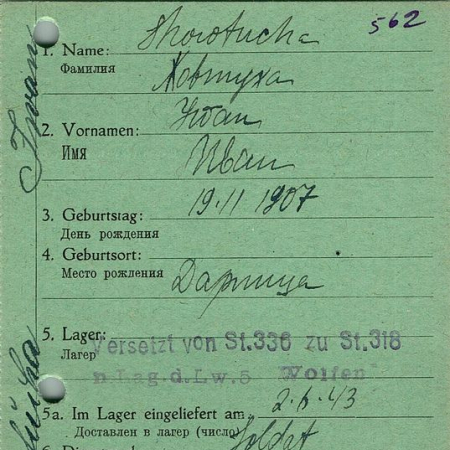 562
1. Name:
Фамилия
Ховтуха
2. Vornamen:
Имя
Иван
3. Geburtstag: 19.11 1907
День рождения
4. Geburtsort:
Место рождения Дарница
5. Lager: Versetzt von St.336 zu St.318
Лагер
n Lag.d.Lw.5 Wolfen
5a. Im Lager eingeliefert am 2.6.43
Доставлен в лагер (число)
Soldat
Iwan